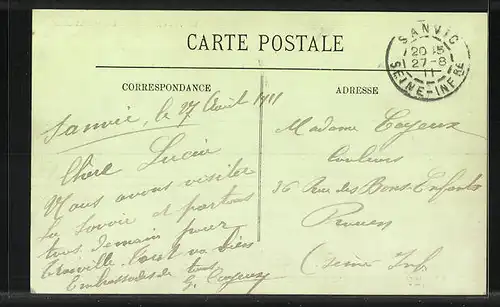 CARTE POSTALE
SANVIC
20 15
27-8
11
SEINE-INFRE
CORRESPONDANCE
ADRESSE
Sanvic, le 27 Août 1911
Chère Lucie
Nous avons visité
La Savoie et partons
tous demain pour
Trouville. Tout va bien
Embrassades de tous
G. Cayeux
Madame Cayeux
Couleurs
36 Rue des Bons-Enfants
Rouen
(Seine Inf